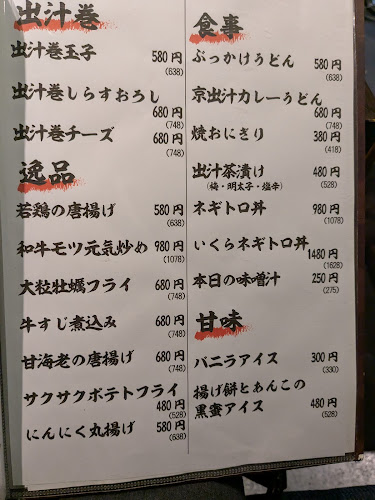 出汁巻
出汁巻玉子 580円
(638)
出汁巻しらすおろし
680円
(748)
出汁巻チーズ 680円
(748)
逸品
若鶏の唐揚げ 580円
(638)
和牛モツ元気炒め 980円
(1078)
大粒牡蠣フライ 680円
(748)
牛すじ煮込み 680円
(748)
甘海老の唐揚げ 680円
(748)
サクサクポテトフライ
480円
(528)
にんにく丸揚げ 580円
(638)
食事
ぶっかけうどん 580円
(638)
京出汁カレーうどん
680円
(748)
焼おにぎり 380円
(418)
出汁茶漬け 480円
(梅・明太子・塩辛) (528)
ネギトロ丼 980円
(1078)
いくらネギトロ丼
1480円
(1628)
本日の味噌汁 250円
(275)
甘味
バニラアイス 300円
(330)
揚げ餅とあんこの
黒蜜アイス 480円
(528)